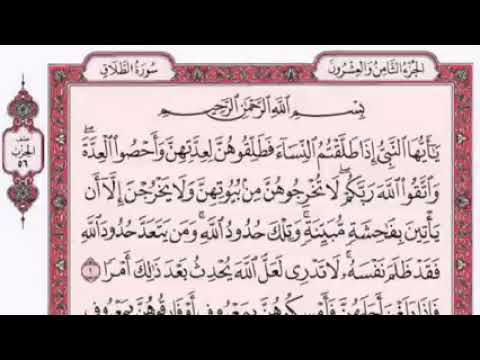 الجُزْءُ الثَّامِنُ وَالْعِشْرُونَ
سُورَةُ الطَّلَاقِ
نصف
الحزب
٥٦
بِسْمِ اللَّهِ الرَّحْمَٰنِ الرَّحِيمِ
يَٰٓأَيُّهَا النَّبِيُّ إِذَا طَلَّقْتُمُ النِّسَآءَ فَطَلِّقُوهُنَّ لِعِدَّتِهِنَّ وَأَحْصُوا الْعِدَّةَ ۖ
وَاتَّقُوا اللَّهَ رَبَّكُمْ ۖ لَا تُخْرِجُوهُنَّ مِنۢ بُيُوتِهِنَّ وَلَا يَخْرُجْنَ إِلَّآ أَن
يَأْتِينَ بِفَٰحِشَةٍ مُّبَيِّنَةٍ ۚ وَتِلْكَ حُدُودُ اللَّهِ ۚ وَمَن يَتَعَدَّ حُدُودَ اللَّهِ
فَقَدْ ظَلَمَ نَفْسَهُۥ ۚ لَا تَدْرِى لَعَلَّ اللَّهَ يُحْدِثُ بَعْدَ ذَٰلِكَ أَمْرًا ١
فَإِذَا بَلَغْنَ أَجَلَهُنَّ فَأَمْسِكُوهُنَّ بِمَعْرُوفٍ أَوْ فَارِقُوهُنَّ بِمَعْرُوفٍ